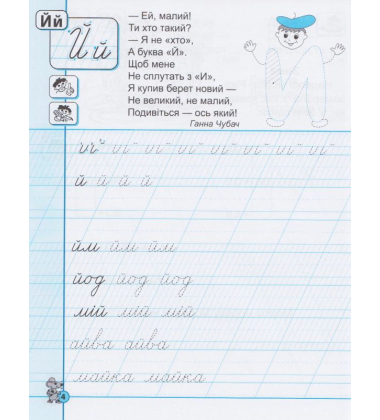 Йй
Й й
— Ей, малий!
Ти хто такий?
— Я не «хто»,
А буква «Й».
Щоб мене
Не сплутать з «И»,
Я купив берет новий —
Не великий, не малий,
Подивіться — ось який!
Ганна Чубач
й й й й
йм йм йм
йод йод йод
мій мій мій
айва айва
майка майка
4